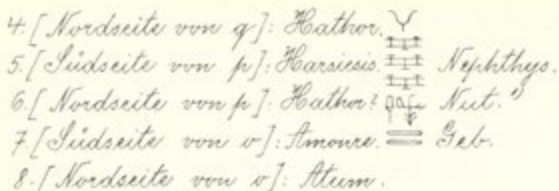 4. [Nordseite von q]: Hathor.
5. [Südseite von p]: Harsiesis. Nephthys.
6. [Nordseite von p]: Hathor? Nut.
7. [Südseite von o]: Amonre. Geb.
8. [Nordseite von o]: Atum.